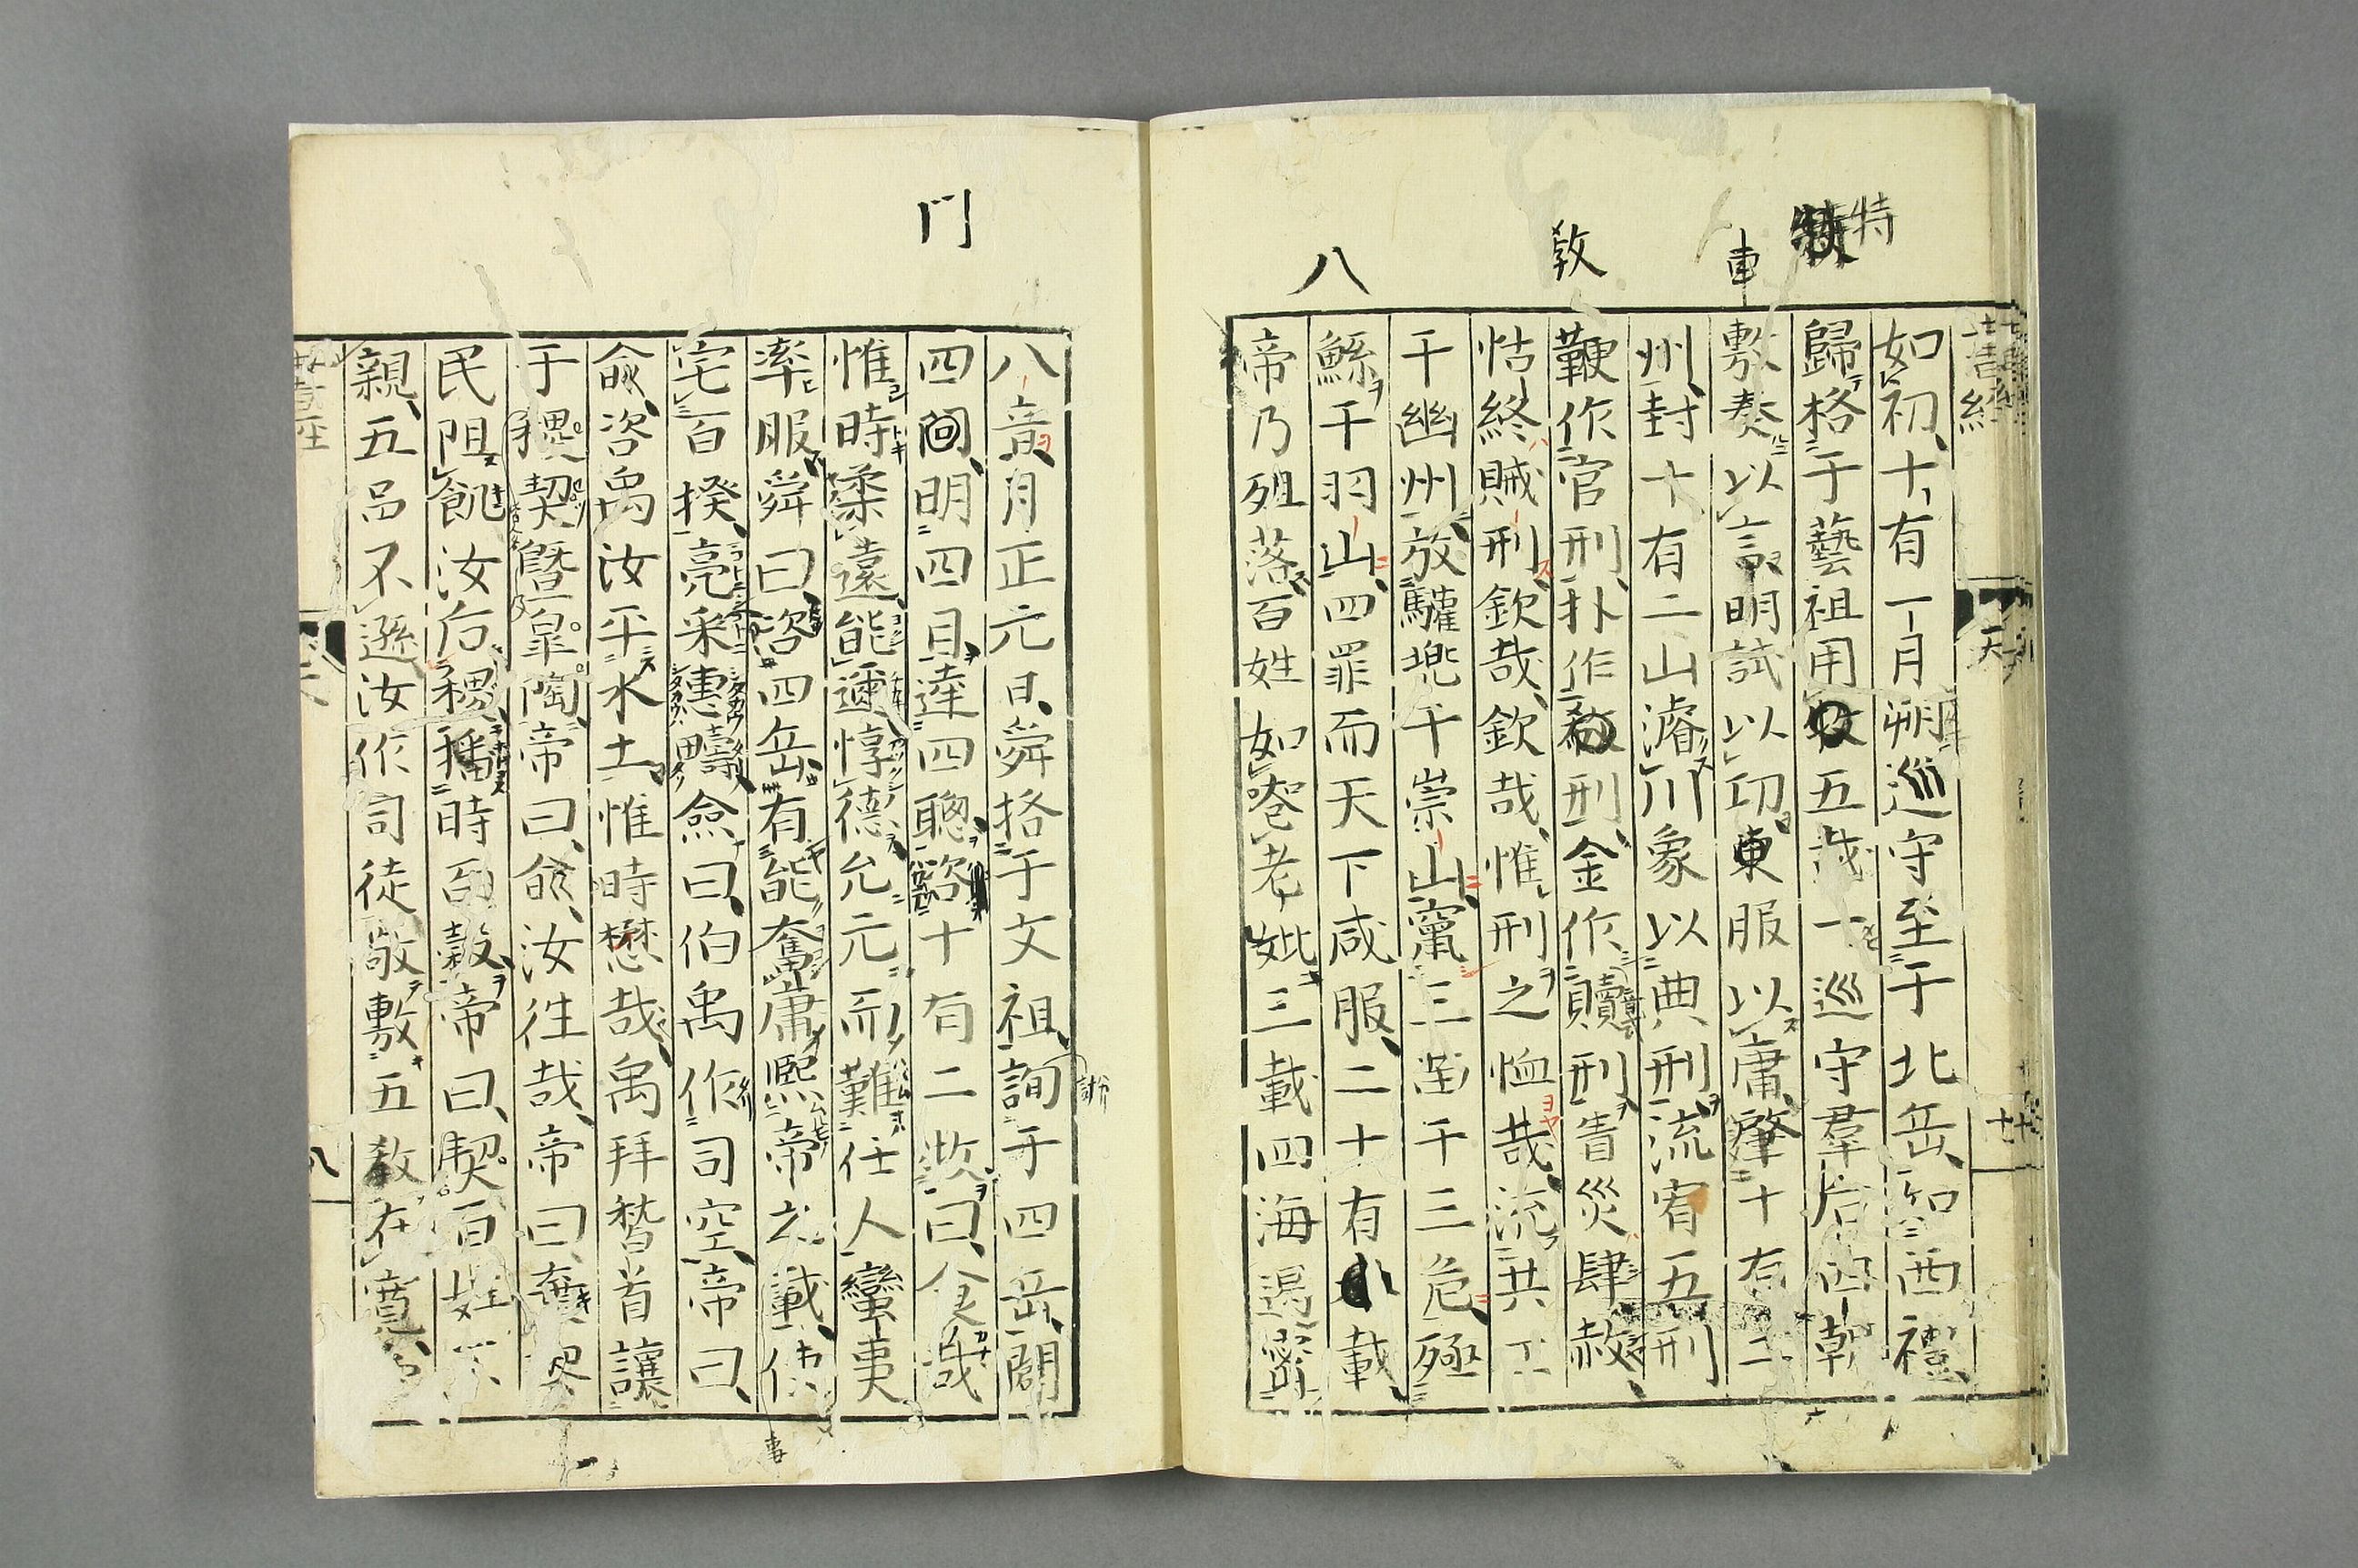 特
車
敎
八
書經
天
如初十有一月朔巡守至于北岳如西禮
歸格于藝祖用五載一巡守羣后四朝
敷奏以言明試以功車服以庸肇十有二
州封十有二山濬川象以典刑流宥五刑
鞭作官刑扑作敎刑金作贖刑眚災肆赦
怙終賊刑欽哉欽哉惟刑之恤哉流共工
于幽州放驩兜于崇山竄三苗于三危殛
鯀于羽山四罪而天下咸服二十有八載
帝乃殂落百姓如喪考妣三載四海遏密
門
八音月正元日舜格于文祖詢于四岳闢
四門明四目達四聰咨十有二牧曰食哉
惟時柔遠能邇惇德允元而難任人蠻夷
率服舜曰咨四岳有能奮庸熙帝之載使
宅百揆亮采惠疇僉曰伯禹作司空帝曰
俞咨禹汝平水土惟時懋哉禹拜稽首讓
于稷契曁皐陶帝曰俞汝往哉帝曰棄黎
民阻飢汝后稷播時百穀帝曰契百姓不
親五品不遜汝作司徒敬敷五敎在寬
八
事